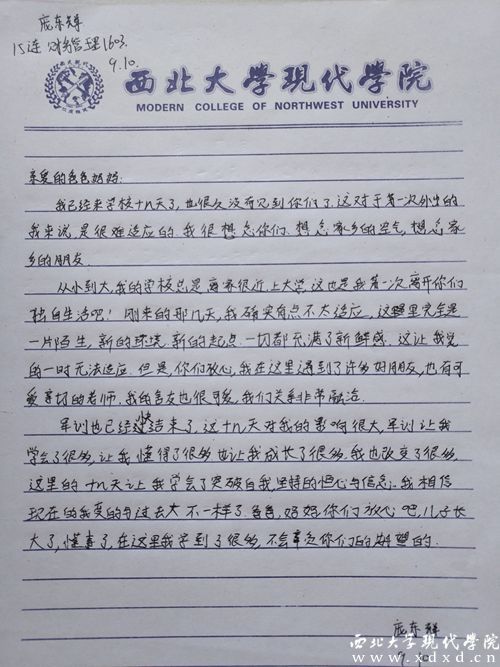 庞东辉
15连 财务管理1603.
9.10.
西北大學現代學院
MODERN COLLEGE OF NORTHWEST UNIVERSITY
亲爱的爸爸妈妈:
我已经来学校十几天了,也很久没有见到你们了.这对于第一次外出的
我来说,是很难适应的.我很想念你们.想念家乡的空气,想念家
乡的朋友.
从小到大,我的学校总是离家很近,上大学,这也是我第一次离开你们
独自生活吧!刚来的那几天,我确实有点不太适应,这里完全是
一片陌生,新的环境,新的起点.一切都充满了新鲜感.这让我觉
的一时无法适应.但是,你们放心,我在这里遇到了许多好朋友,也有可
爱亲切的老师.我的舍友也很可爱,我们关系非常融洽.
军训也已经快结束了,这十几天对我的影响很大,军训让我
学会了很多,让我懂得了很多也让我成长了很多.我也改变了很多.
这里的十几天让我学会了突破自我坚持的恒心与信念.我相信
现在的我变的与过去大不一样了.爸爸,妈妈,你们放心吧,儿子长
大了,懂事了,在这里我学到了很多,不会辜负你们的期望的.
庞东辉
西北大学现代学院
www.xdxd.cn